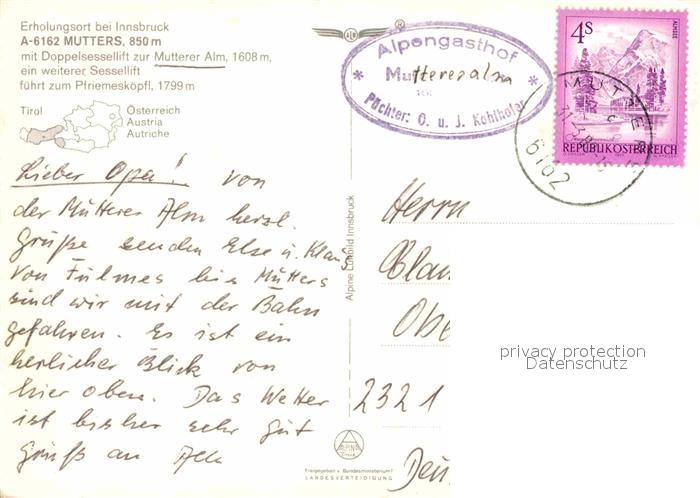 Erholungsort bei Innsbruck
A-6162 MUTTERS, 850 m
mit Doppelsessellift zur Mutterer Alm, 1608 m,
ein weiterer Sessellift
führt zum Pfriemesköpfl, 1799 m
Tirol
Österreich
Austria
Autriche
Alpengasthof
Muttereralm
Pächter: O. u. J. Kohlhofer
4S
ALMSEE
REPUBLIK ÖSTERREICH
MUTTERS
6162
Lieber Opa! Von
der Mutterer Alm herzl.
Grüße senden Else u. Klaus
Von Fulmes bis Mutters
sind wir mit der Bahn
gefahren. Es ist ein
herrlicher Blick von
hier oben. Das Wetter
ist bisher sehr gut
Gruß an Alle
Alpine Luftbild Innsbruck
Herrn
Obe
2321
Deu
privacy protection
Datenschutz
ALPINA
Freigegeben v. Bundesministerium f.
LANDESVERTEIDIGUNG